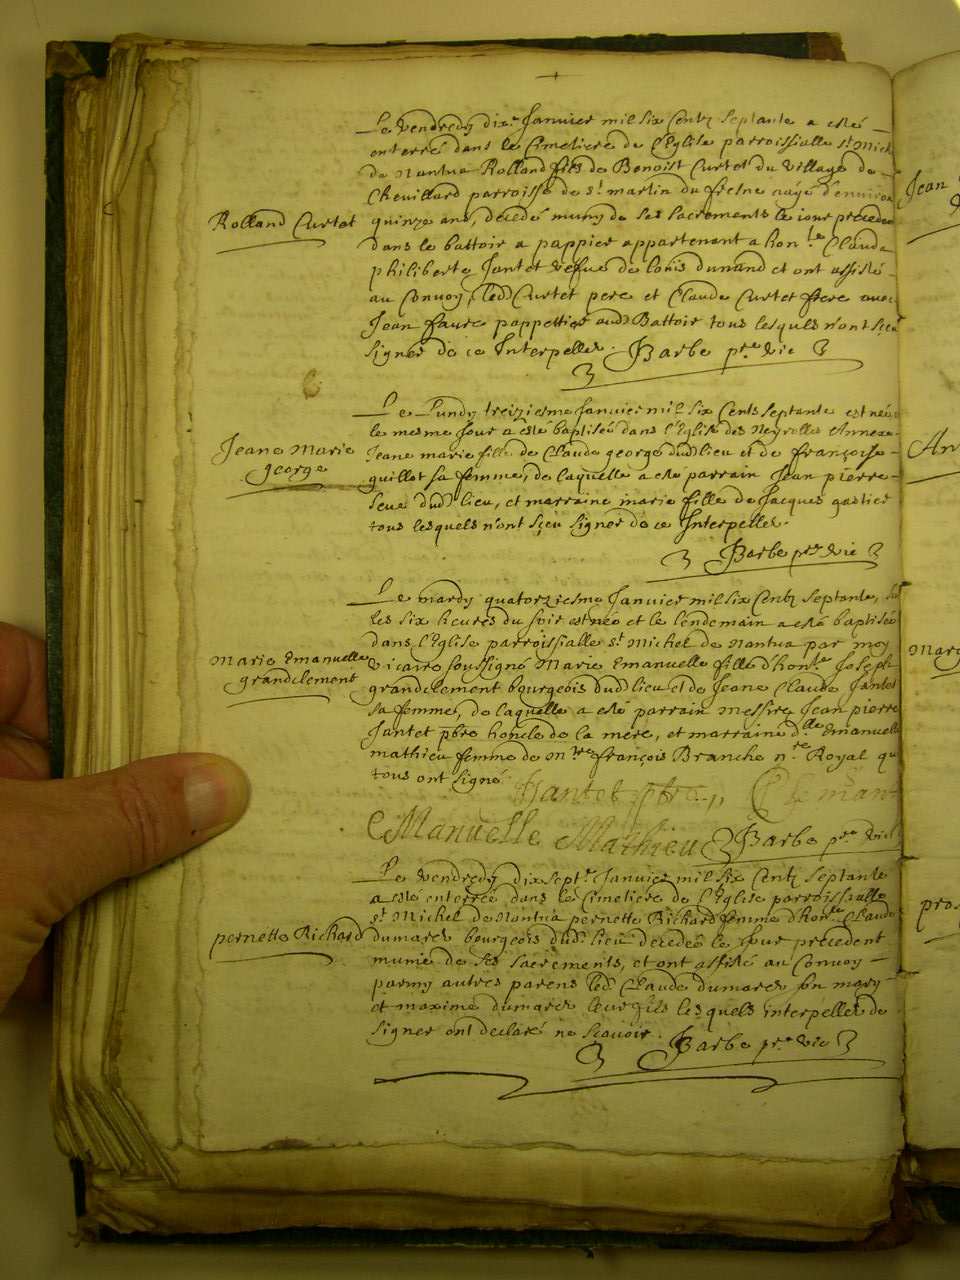 Le vendredy dixe Janvier mil six Centz septante a esté
enterré dans le Cimetiere de L'Eglise parroissialle st Mich
de Nantua Rolland fils de Benoist Curtet du village de
Chevillard parroisse de st martin du fresne aagé d'environ
Rolland Curtet
quinze ans, decedé muny de ses sacrements le iour precedent
dans le battoir a pappier appartenant a hon.le Claude
philiberte Jantet vefue de louis dunand et ont assisté
au Convoy, led Curtet pere et Claude Curtet frere avec
Jean faure pappettier aud Battoir tous lesquls n'ont sçeu
signer de ce Interpellez. Barbe pre vic
Le Lundy treiziesme Janvier mil six Cents septante est née
le mesme Jour a esté baptisée dans l'Eglise des Neyrolles Annexe
Jeane Marie
george
Jeane marie fille de Claude george dud lieu et de françoise
guillot sa femme, de laquelle a esté parrain Jean pierre
seue dud lieu, et marraine marie fille de Jacques gastier
tous lesquels n'ont sçeu signer de ce Interpellez.
Barbe pre vic
Le mardy quatorziesme Janvier mil six Centz septante, su
les six heures du soir est néo et le lendemain a esté baptisée
dans l'Eglise parroissialle st Michel de Nantua par moy
Marie Emanuelle
grandclement
vicaire soussigné Marie Emanuelle fille d'hon.le Joseph
grandclement bourgeois dud lieu et de Jeane Claude Jantet
sa femme, de laquelle a esté parrain Messire Jean pierre
Jantet pbre honcle de la mere, et marraine d.lle Emanuelle
mathieu femme de Mtre françois Branche nre Royal qu
tous ont signé
Jantet ptre
Emanuelle Mathieu Barbe pre vic
Le vendredy dix sept.e Janvier mil six Centz septante
a esté enterrée dans le Cimetiere de L'Eglise parroissialle
st Michel de Nantua pernette Richard femme d'hon.le Claude
pernette Richard
dumarez bourgeois dud lieu decedée le Jour precedent
munie de ses sacrements, et ont assisté au Convoy
parmy autres parens led Claude dumarez son mary
et maxime dumarez leur fils lesquels interpellez de
signer ont declaré ne scavoir. Barbe pre vic
Jean